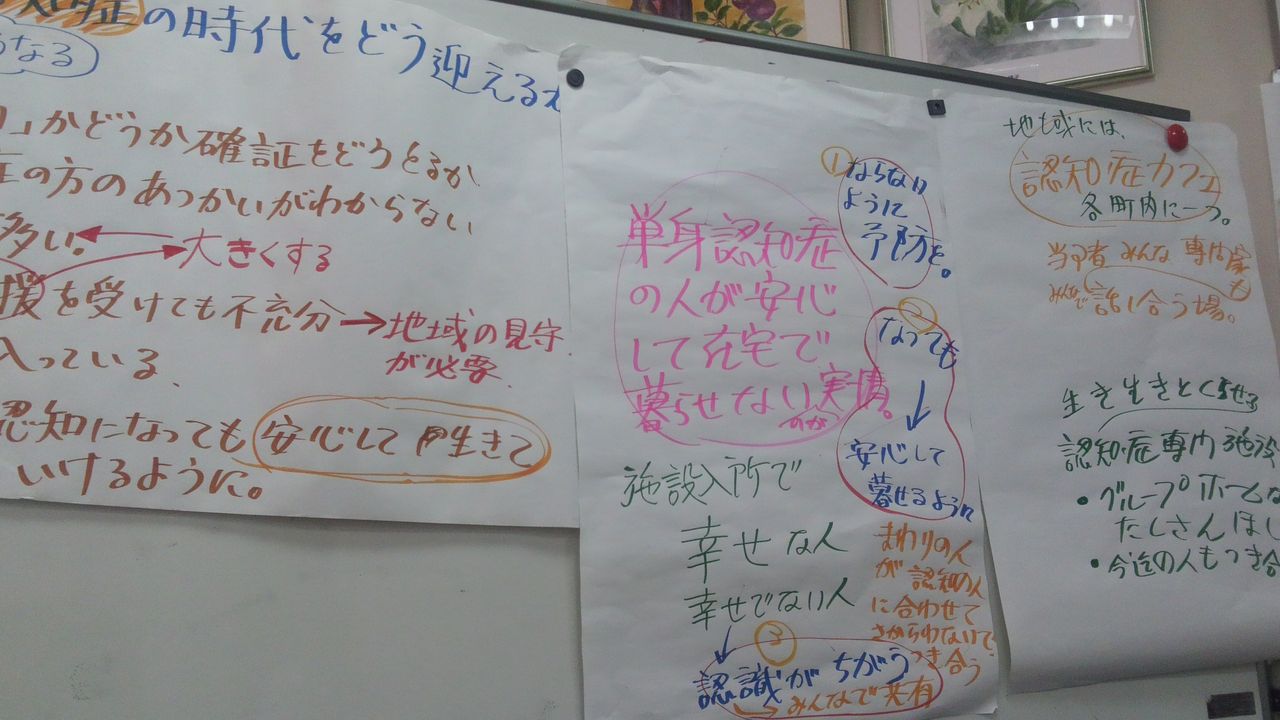 の時代をどう迎えるか
うなる
かどうか確証をどうとるか
の方のあつかいがわからない
多い。
大きくする
援を受けても不充分→地域の見守
が必要
入っている、
認知になっても安心して生きて
いけるように。
単身認知症
の人が安心
して在宅で
暮らせない実情。
のか
①ならない
ように
予防を。
②
なっても
↓
安心して
暮せるように
施設入所で
幸せな人
幸せでない人
↓
③
認識がちがう
→みんなで共有
まわりの人
が認知の人
に合わせて
さからわないで
つき合う
地域には、
認知症カフェ
各町内に一つ。
当事者 みんな 専門家
も
みんなで話し合う場。
生き生きとくらせる
認知症専門施設
・グループホームな
たくさんほし
・今迄の人もつき合